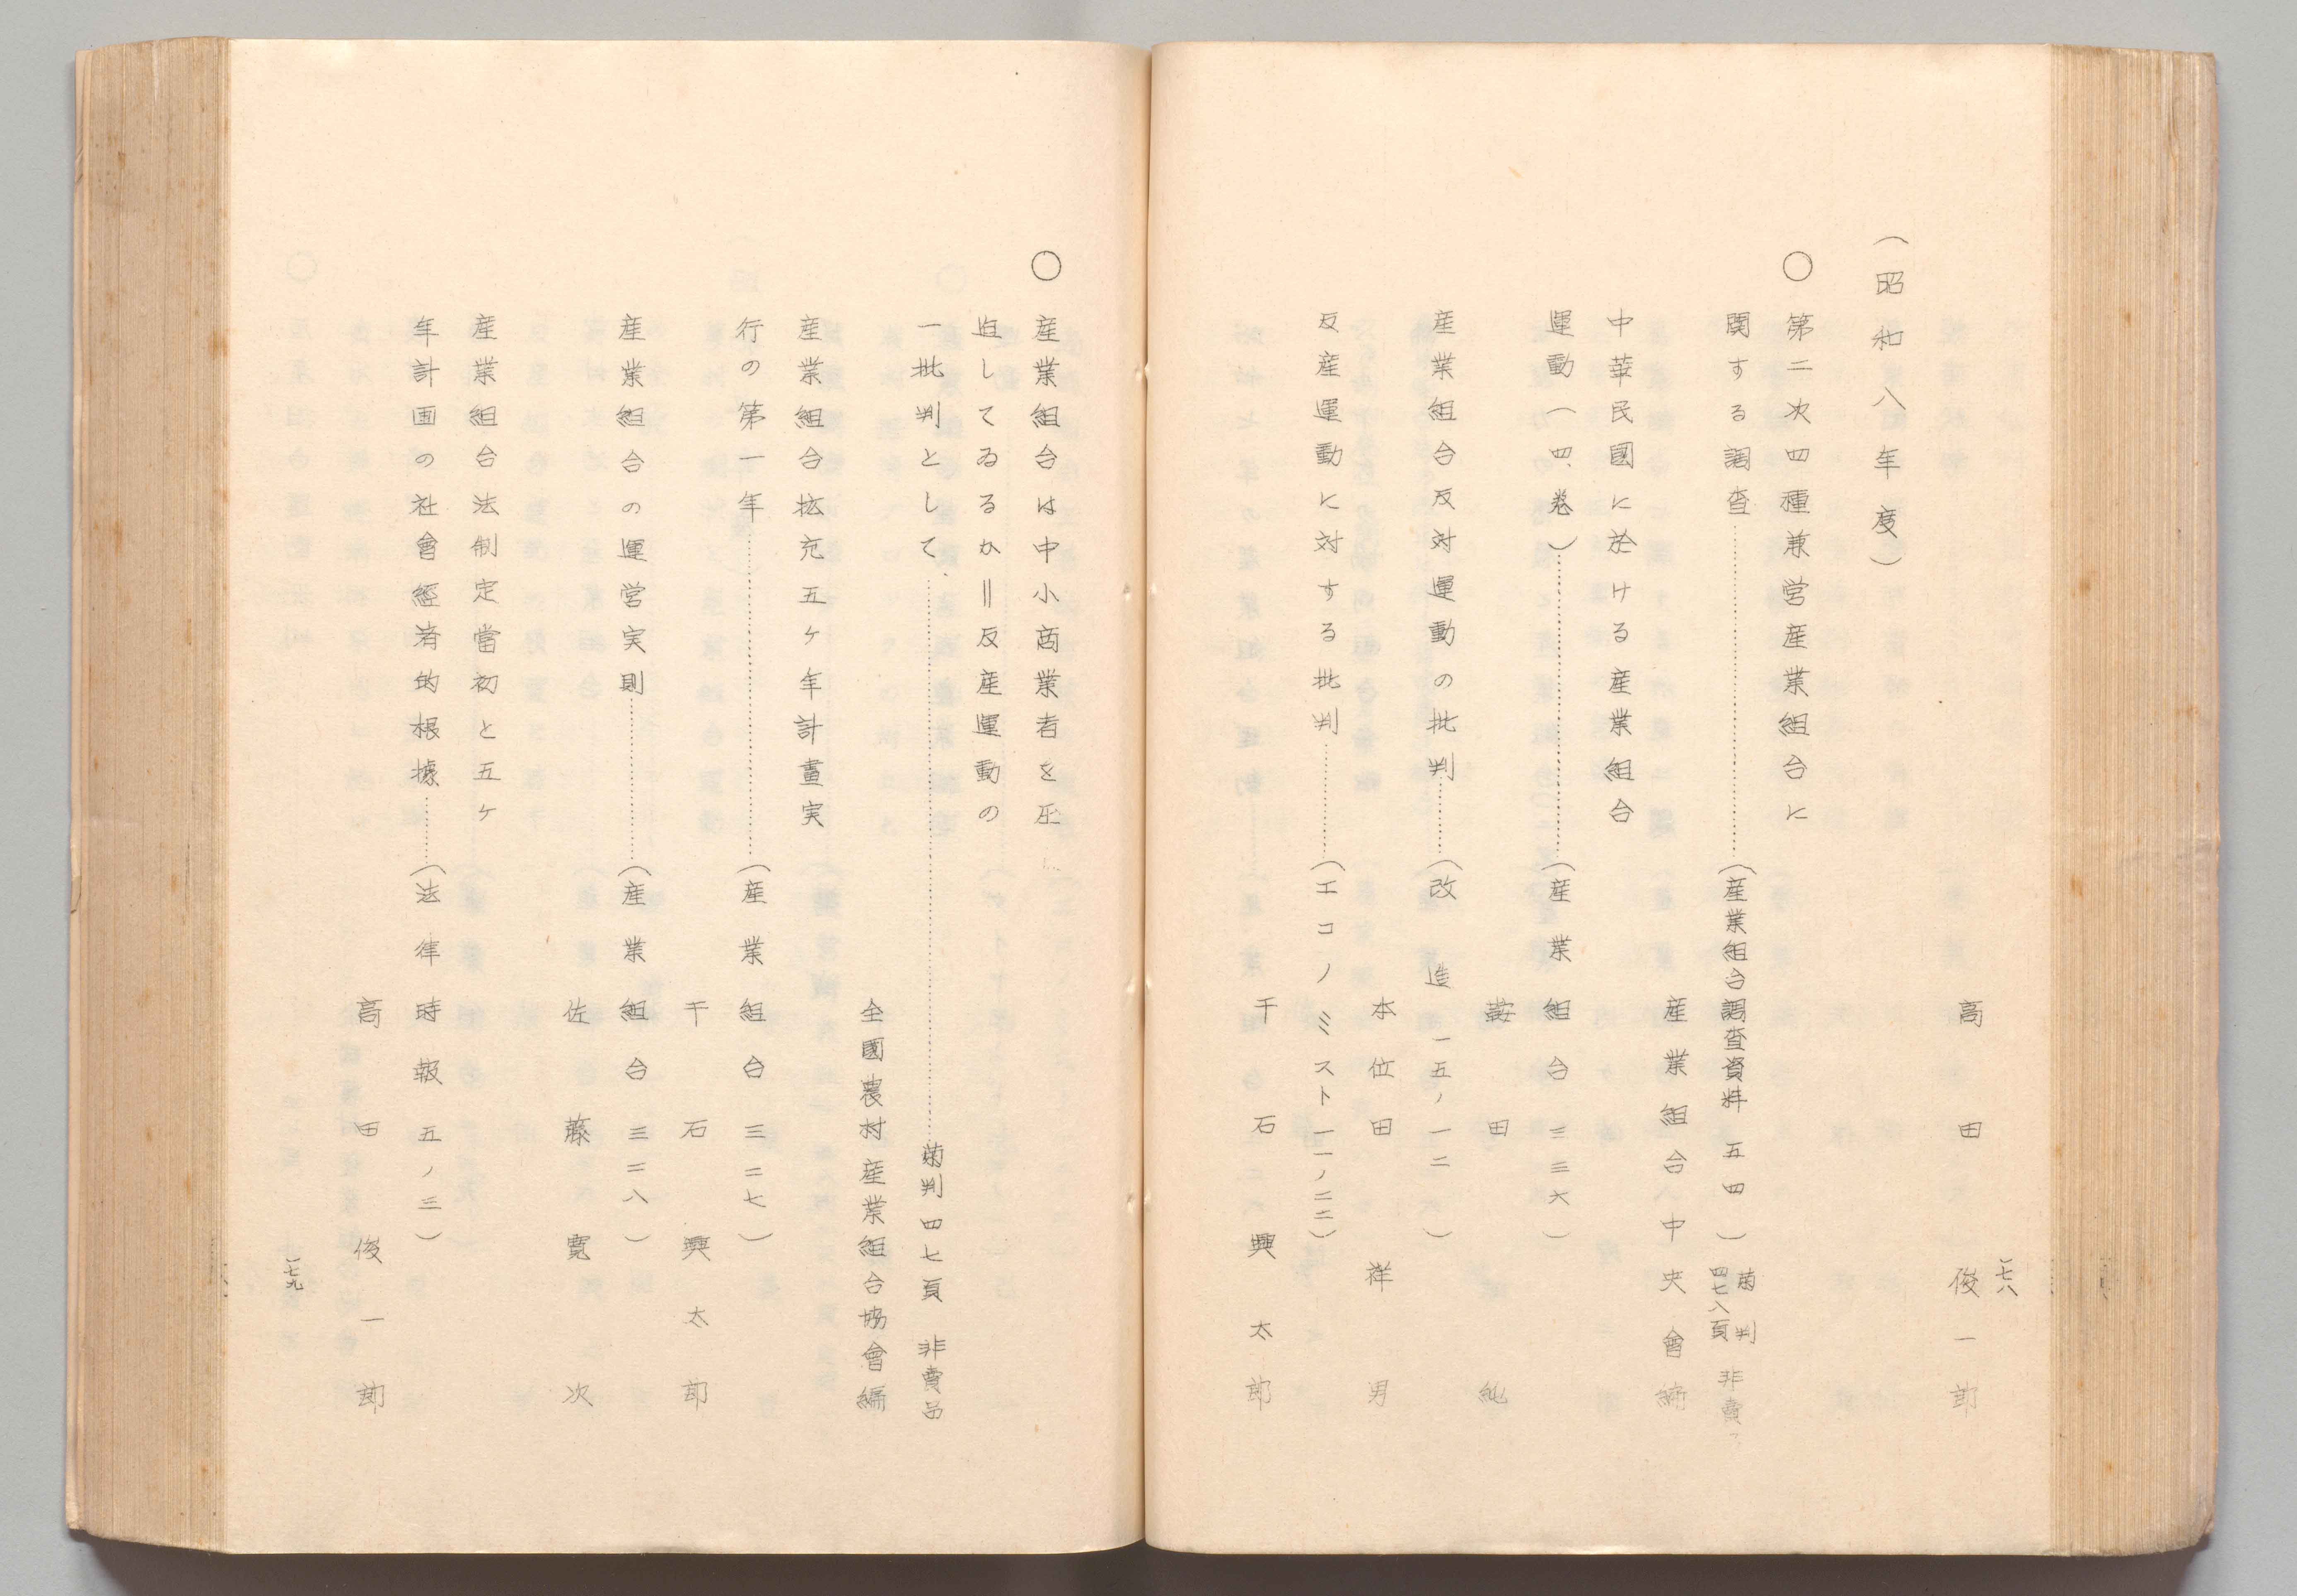 一七八
高田俊一郎
（昭和八年度）
○第二次四種兼営産業組合に
関する調査…………（産業組合調査資料 五四）菊判 四七八頁 非賣
産業組合中央會編
中華民國に於ける産業組合
運動（四、巻）…………（産業組合 三三六）
鞍田 純
産業組合反対運動の批判………（改造 一五ノ一二）
本位田祥男
反産運動に対する批判…………（エコノミスト一一ノ二二）
千石興太郎
○産業組合は中小商業者を圧
迫してゐるか＝反産運動の
一批判として…………菊判 四七頁 非賣品
全國農村産業組合協會編
産業組合拡充五ヶ年計畫実
行の第一年…………（産業組合 三二七）
千石興太郎
産業組合の運営実則…………（産業組合 三二八）
佐藤寛次
産業組合法制定當初と五ヶ
年計画の社會經済的根據……（法律時報 五ノ三）
高田俊一郎
一七九